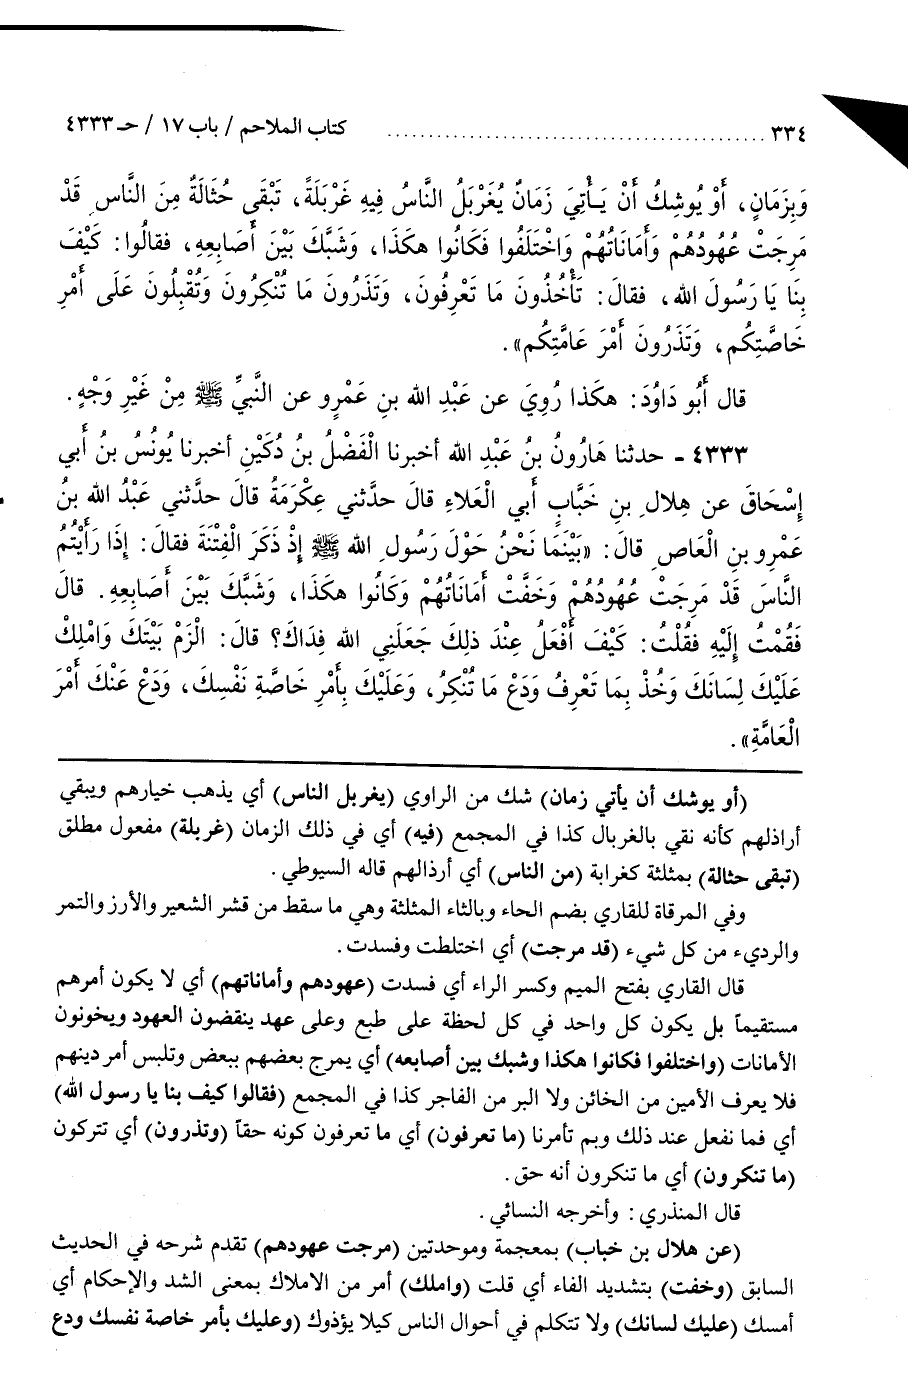 ٣٣٤ ........................................ كتاب الملاحم / باب ١٧ / حـ ٤٣٣٣
وَبِزَمَانٍ، أَوْ يُوشِكُ أَنْ يَـأْتِيَ زَمَانٌ يُغَرْبَلُ النَّاسُ فِيهِ غَرْبَلَةً، تَبْقَى حُثَالَةٌ مِنَ النَّاسِ قَدْ
مَرِجَتْ عُهُودُهُمْ وَأَمَانَاتُهُمْ وَاخْتَلَفُوا فَكَانُوا هكَذَا، وَشَبَّكَ بَيْنَ أَصَابِعِهِ، فقَالُوا: كَيْفَ
بِنَا يَا رَسُولَ الله، فقَالَ: تَأْخُذُونَ مَا تَعْرِفُونَ، وَتَذَرُونَ مَا تُنْكِرُونَ وَتُقْبِلُونَ عَلَى أَمْرِ
خَاصَّتِكُم، وَتَذَرُونَ أَمْرَ عَامَّتِكُم».
قال أَبُو دَاوُدَ: هكَذا رُوِيَ عن عَبْدِ الله بنِ عَمْرٍو عن النَّبيِّ ﷺ مِنْ غَيْرِ وَجْهٍ.
٤٣٣٣ - حدثنا هَارُونُ بنُ عَبْدِ الله أخبرنا الْفَضْلُ بنُ دُكَيْنٍ أخبرنا يُونُسُ بنُ أَبي
إِسْحَاقَ عن هِلَالِ بنِ خَبَّابٍ أَبي الْعَلَاءِ قالَ حدَّثني عِكْرَمَةُ قالَ حدَّثني عَبْدُ الله بنُ
عَمْرِو بنِ الْعَاصِ قالَ: «بَيْنَمَا نَحْنُ حَوْلَ رَسُولِ الله ﷺ إِذْ ذَكَرَ الْفِتْنَةَ فقالَ: إِذَا رَأَيْتُمُ
النَّاسَ قَدْ مَرِجَتْ عُهُودُهُمْ وَخَفَّتْ أَمَانَاتُهُمْ وَكَانُوا هكَذَا، وَشَبَّكَ بَيْنَ أَصَابِعِهِ. قال
فَقُمْتُ إِلَيْهِ فقُلْتُ: كَيْفَ أَفْعَلُ عِنْدَ ذلِكَ جَعَلَنِي الله فِدَاكَ؟ قالَ: الْزَمْ بَيْتَكَ وَامْلِكْ
عَلَيْكَ لِسَانَكَ وَخُذْ بِمَا تَعْرِفُ وَدَعْ مَا تُنْكِرُ، وَعَلَيْكَ بِأَمْرِ خَاصَّةِ نَفْسِكَ، وَدَعْ عَنْكَ أَمْرَ
الْعَامَّةِ».
(أو يوشك أن يأتي زمان) شك من الراوي (يغربل الناس) أي يذهب خيارهم ويبقي
أراذلهم كأنه نقي بالغربال كذا في المجمع (فيه) أي في ذلك الزمان (غربلة) مفعول مطلق
(تبقى حثالة) بمثلثة كغرابة (من الناس) أي أرذالهم قاله السيوطي.
وفي المرقاة للقاري بضم الحاء وبالثاء المثلثة وهي ما سقط من قشر الشعير والأرز والتمر
والرديء من كل شيء (قد مرجت) أي اختلطت وفسدت.
قال القاري بفتح الميم وكسر الراء أي فسدت (عهودهم وأماناتهم) أي لا يكون أمرهم
مستقيماً بل يكون كل واحد في كل لحظة على طبع وعلى عهد ينقضون العهود ويخونون
الأمانات (واختلفوا فكانوا هكذا وشبك بين أصابعه) أي يمرج بعضهم ببعض وتلبس أمر دينهم
فلا يعرف الأمين من الخائن ولا البر من الفاجر كذا في المجمع (فقالوا كيف بنا يا رسول الله)
أي فما نفعل عند ذلك وبم تأمرنا (ما تعرفون) أي ما تعرفون كونه حقاً (وتذرون) أي تتركون
(ما تنكرون) أي ما تنكرون أنه حق.
قال المنذري: وأخرجه النسائي.
(عن هلال بن خباب) بمعجمة وموحدتين (مرجت عهودهم) تقدم شرحه في الحديث
السابق (وخفت) بتشديد الفاء أي قلت (واملك) أمر من الاملاك بمعنى الشد والإحكام أي
أمسك (عليك لسانك) ولا تتكلم في أحوال الناس كيلا يؤذوك (وعليك بأمر خاصة نفسك ودع